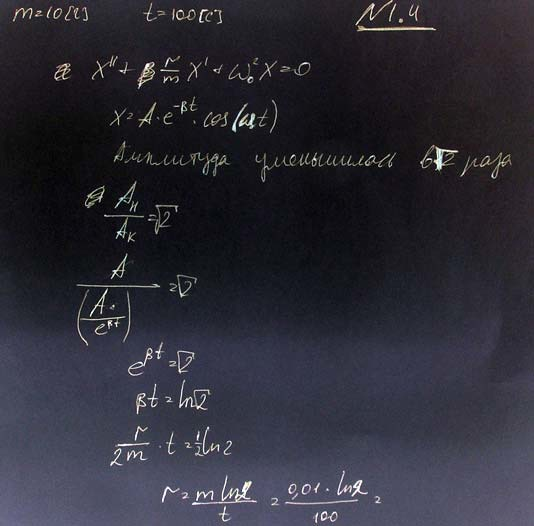 m=10[г] t=100[с] N1.4
x'' + r/m x' + ω₀² x = 0
x = A·e^(-βt)·cos(ωt)
Амплитуда уменьшилась в √2 раза
Aн/Aк = √2
A/(A/e^(βt)) = √2
e^(βt) = √2
βt = ln√2
r/2m · t = 1/2 ln2
r = m ln2/t = 0,01·ln2/100 =